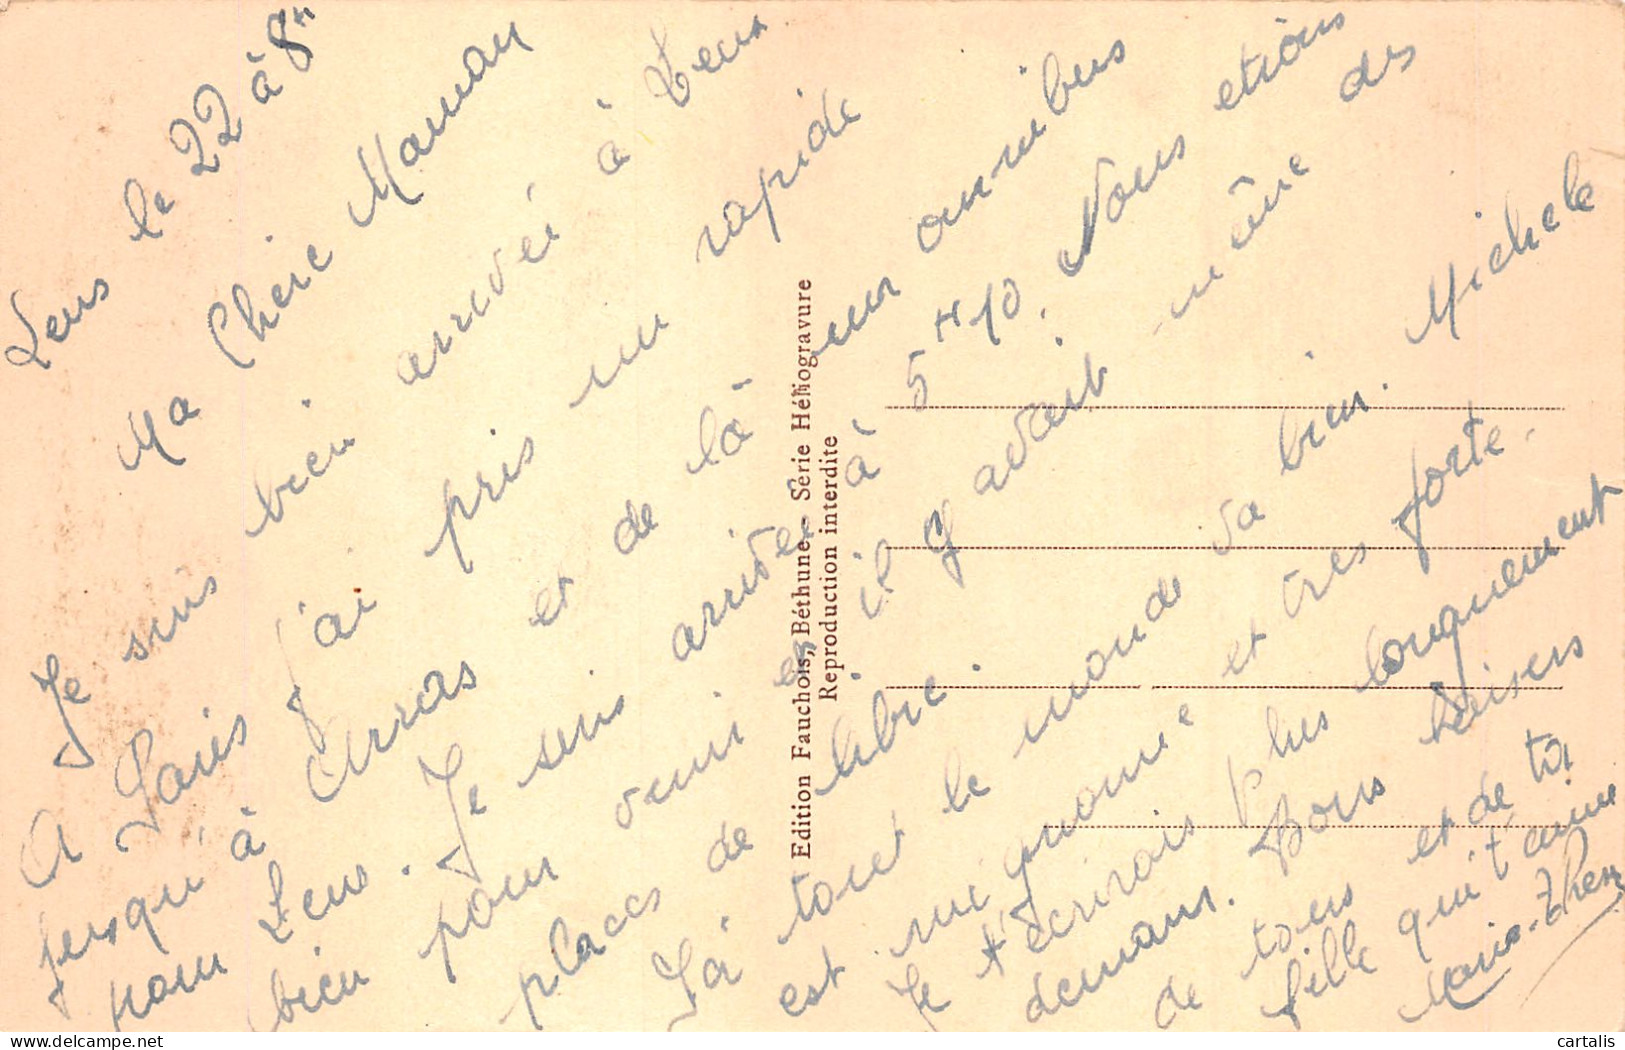 Lens le 22 à 8h
Ma Chère Maman
Je suis bien arrivée à Lens
A Paris j'ai pris un rapide
jusqu'à Arras et de là un omnibus
pour Lens. Je suis arrivée à 5H10. Nous etions
bien pour venir et il y avait même des
places de libre.
Ici tout le monde va bien. Michele
est mignonne et très forte.
Je t'écrirais plus longuement
demain. Bons baisers
de tous et de ta
fille qui t'aime
Marie-Thérèse
Edition Fauchois, Béthune - Série Héliogravure
Reproduction interdite
cartalis